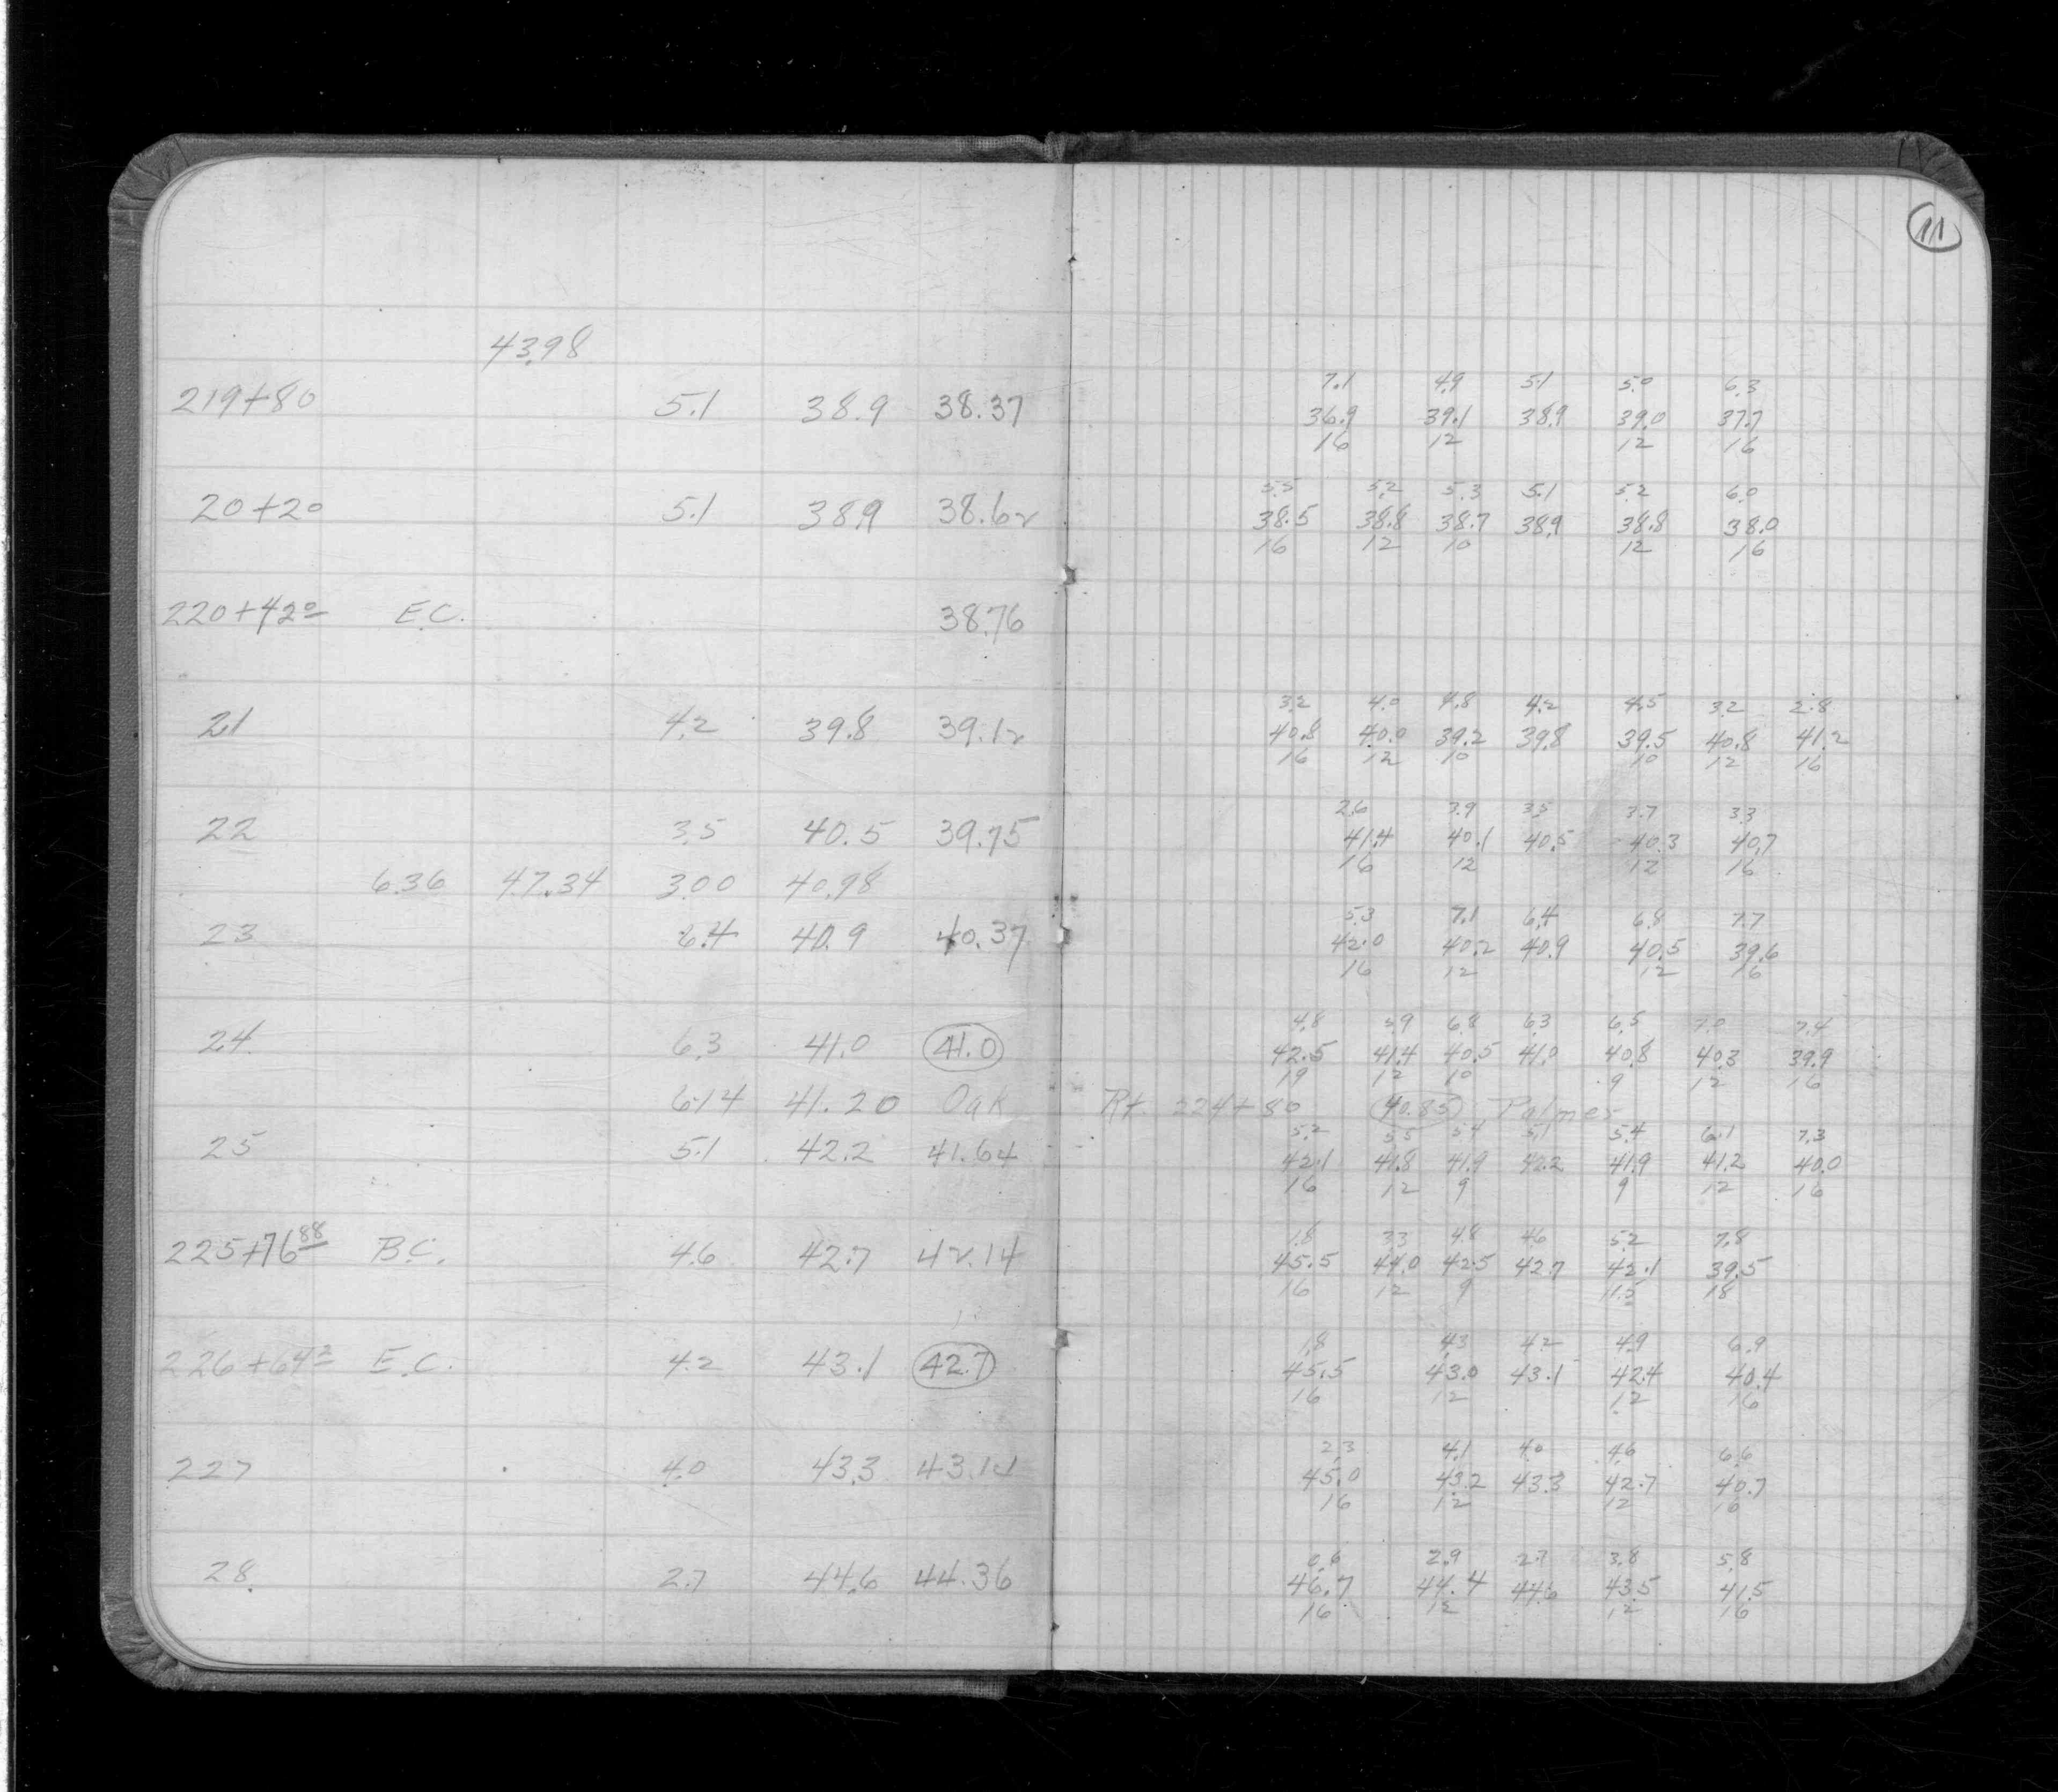 11
43.98
7.1 4.9 5.1 5.0 6.3
219+80 5.1 38.9 38.37 36.9 39.1 38.9 39.0 37.7
16 12 12 16
5.5 5.2 5.3 5.1 5.2 6.0
20+20 5.1 38.9 38.62 38.5 38.8 38.7 38.9 38.8 38.0
16 12 10 12 16
220+42º E.C. 38.76
3.2 4.0 4.8 4.2 4.5 3.2 2.8
21 4.2 39.8 39.12 40.8 40.0 39.2 39.8 39.5 40.8 41.2
16 12 10 10 12 16
2.6 3.9 3.5 3.7 3.3
22 3.5 40.5 39.75 41.4 40.1 40.5 40.3 40.7
16 12 12 16
6.36 47.34 3.00 40.98
5.3 7.1 6.4 6.8 7.7
23 6.4 40.9 40.37 42.0 40.2 40.9 40.5 39.6
16 12 12 16
4.8 5.9 6.8 6.3 6.5 7.0 7.4
24 6.3 41.0 41.0 42.5 41.4 40.5 41.0 40.8 40.3 39.9
19 12 10 9 12 16
6.14 41.20 Oak Rt. 224+80 40.85 Palmer
5.2 5.5 5.4 5.1 5.4 6.1 7.3
25 5.1 42.2 41.64 42.1 41.8 41.9 42.2 41.9 41.2 40.0
16 12 9 9 12 16
1.8 3.3 4.8 4.6 5.2 7.8
225+76 88 B.C. 4.6 42.7 42.14 45.5 44.0 42.5 42.7 42.1 39.5
16 12 9 11.5 18
1.8 4.3 4.2 4.9 6.9
226+64 E.C. 4.2 43.1 42.7 45.5 43.0 43.1 42.4 40.4
16 12 12 16
2.3 4.1 4.0 4.6 6.6
227 4.0 43.3 45.0 43.2 43.3 42.7 40.7
16 12 12 16
0.6 2.9 2.7 3.8 5.8
28 2.7 44.6 44.36 46.7 44.4 44.6 43.5 41.5
16 12 12 16